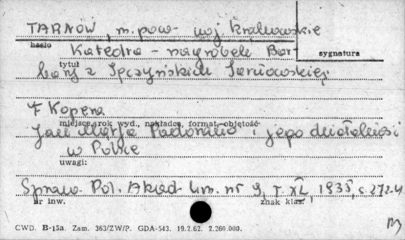 TARNÓW, m. pow. woj. krakowskie
hasło
Katedra – nagrobek Bar-
sygnatura
tytuł
bary z Tęczyńskich Tarnowskiej
F Kopera
miejsce, rok wyd., nakładca, format, objętość
Jan Maria Padovano i jego działalność
w Polsce
uwagi:
Spraw. Pol. Akad. Um. nr 9, T. XL, 1935, s. 272-4
nr inw.
znak klas.
CWD. B-15a. Zam. 363/ZW/P. GDA-543. 19.2.62. 2.260.000.